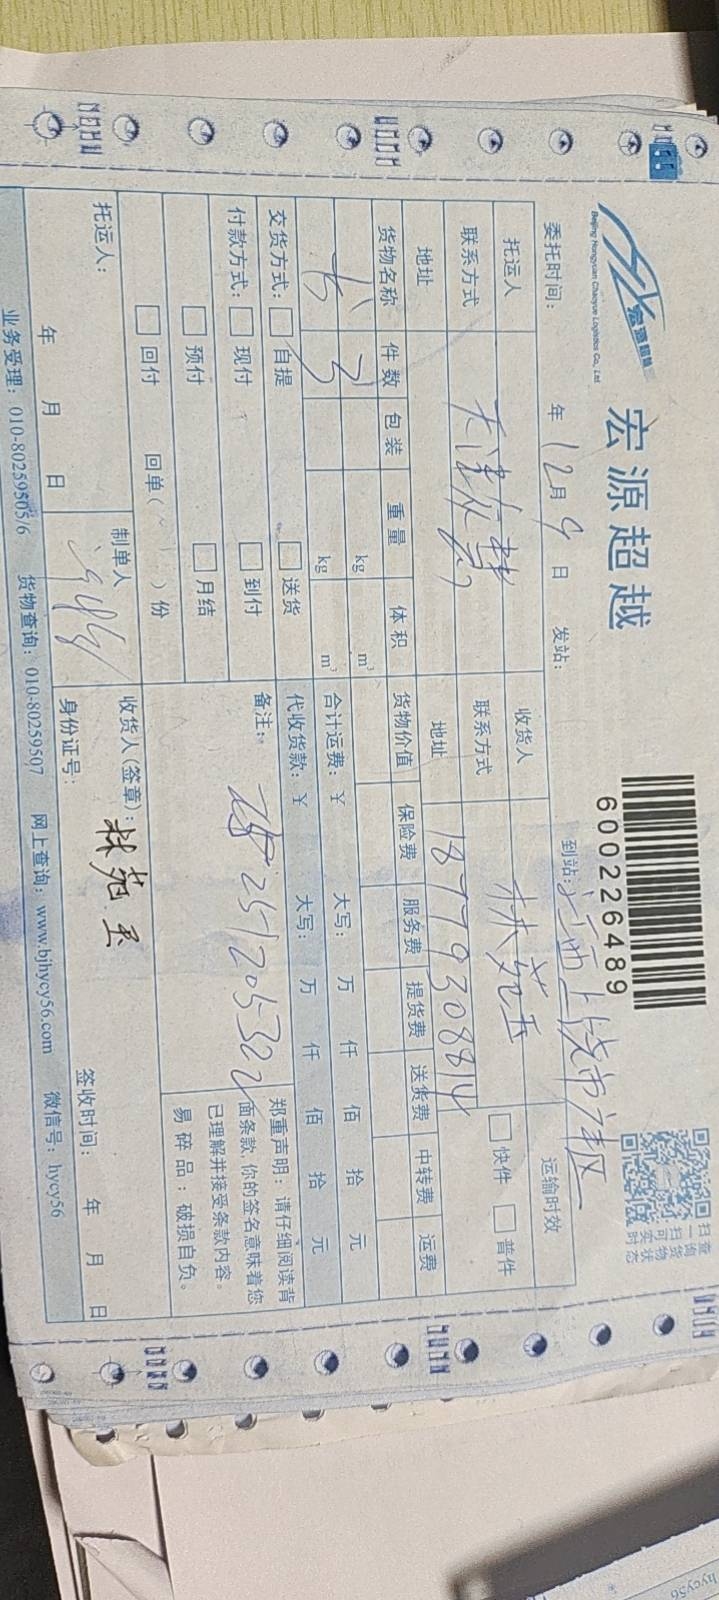 宏源超越
宏源超越
Beijing Hongyuan Chaoyue Logistics Co., Ltd
600226489
扫一扫可实时
查询货物状态
委托时间： 年 12月 9 日 发站： 到站： 江西上饶市
托运人 收货人 林苑玉 运输时效
联系方式 天津 联系方式 18779308814 快件 普件
地址 地址
货物名称 件数 包装 重量 体积 货物价值 保险费 服务费 提货费 送货费 中转费 运费
书 3 kg m³
kg m³ 合计运费：￥ 大写： 万 仟 佰 拾 元
交货方式： 自提 送货 代收货款：￥ 大写： 万 仟 佰 拾 元
付款方式： 现付 到付 备注： 251205322
预付 月结
回付 回单（ ）份
郑重声明：请仔细阅读背
面条款，你的签名意味着您
已理解并接受条款内容。
易碎品：破损自负。
托运人： 制单人 收货人（签章）：林苑玉
年 月 日 身份证号： 签收时间： 年 月 日
业务受理：010-80259505/6 货物查询：010-80259507 网上查询：www.bjhycy56.com 微信号：hycy56
hycy56